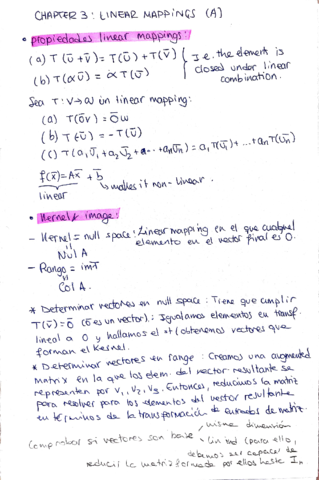 CHAPTER 3: LINEAR MAPPINGS (A)
• propiedades linear mappings:
(a) T(ū + v̄) = T(ū) + T(v̄) { I.e. the element is
(b) T(αū) = αT(ū) closed under linear
combination.
Sea T: V→W un linear mapping:
(a) T(0̄v) = 0̄w
(b) T(-v̄) = -T(v̄)
(c) T(a₁v̄₁ + a₂v̄₂ + ... + anv̄n) = a₁T(v̄₁) + ... + anT(v̄n)
f(x̄) = Ax̄ + b̄
linear makes it non-linear.
• Kernel & image:
- Kernel = null space: Linear mapping en el que cualquier
elemento en el vector final es 0.
Nul A
- Rango = imT
Col A.
* Determinar vectores en null space: Tiene que cumplir
T(v̄) = 0̄ (0̄ es un vector). Igualamos elementos en transf.
lineal a 0 y hallamos el (obtenemos vectores que
forman el kernel.
* Determinar vectores en range: Creamos una augmented
matrix en la que los elem. del vector resultante se
representen por v₁, v₂, v₃. Entonces, reducimos la matriz
para resolver para los elementos del vector resultante
en términos de la transformación de entradas de matriz.
misma dimensión
Comprobar si vectores son base lin ind (para ello,
debemos ser capaces de
reducir la matriz formada por ellos hasta In